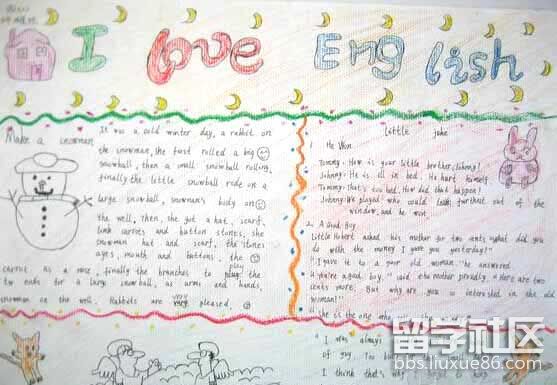 I love English
Make a snowman
It was a cold winter day, a rabbit on
the snowman, the first rolled a big
snowball, then a small snowball rolling,
finally the little snowball rode on a
large snowball, snowman's body on
the well, Then, she got a hat, scarf,
carries and button stones, she
snowman hat and scarf, the stones
eyes, mouth and buttons, the
carrot as a nose, finally the branches to plug the
two ends for a large snowball, as arms and hands,
snowman on the well. Rabbits are very pleased.
Little joke
1. He Won
Tommy: How is your little brother, Johnny?
Johnny: He is ill in bed. He hurt himself.
Tommy: That's too bad. How did that happen?
Johnny: We played who could lean furthest out of the
window, and he won.
2. A Good Boy
Little Robert asked his mother for two cents. What did you
do with the money I gave you yesterday?"
"I gave it to a poor old woman," he answered
"You're a good boy," said the mother proudly. "Here are two
cents more. But why are you so interested in the old
woman?"
"She is the one who
"I was
of guy,
I think that's why
留学社区
bbs.liuxue86.com